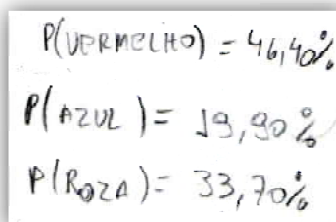 P(VERMELHO) = 46,40%
P(AZUL) = 19,90%
P(ROZA) = 33,70%